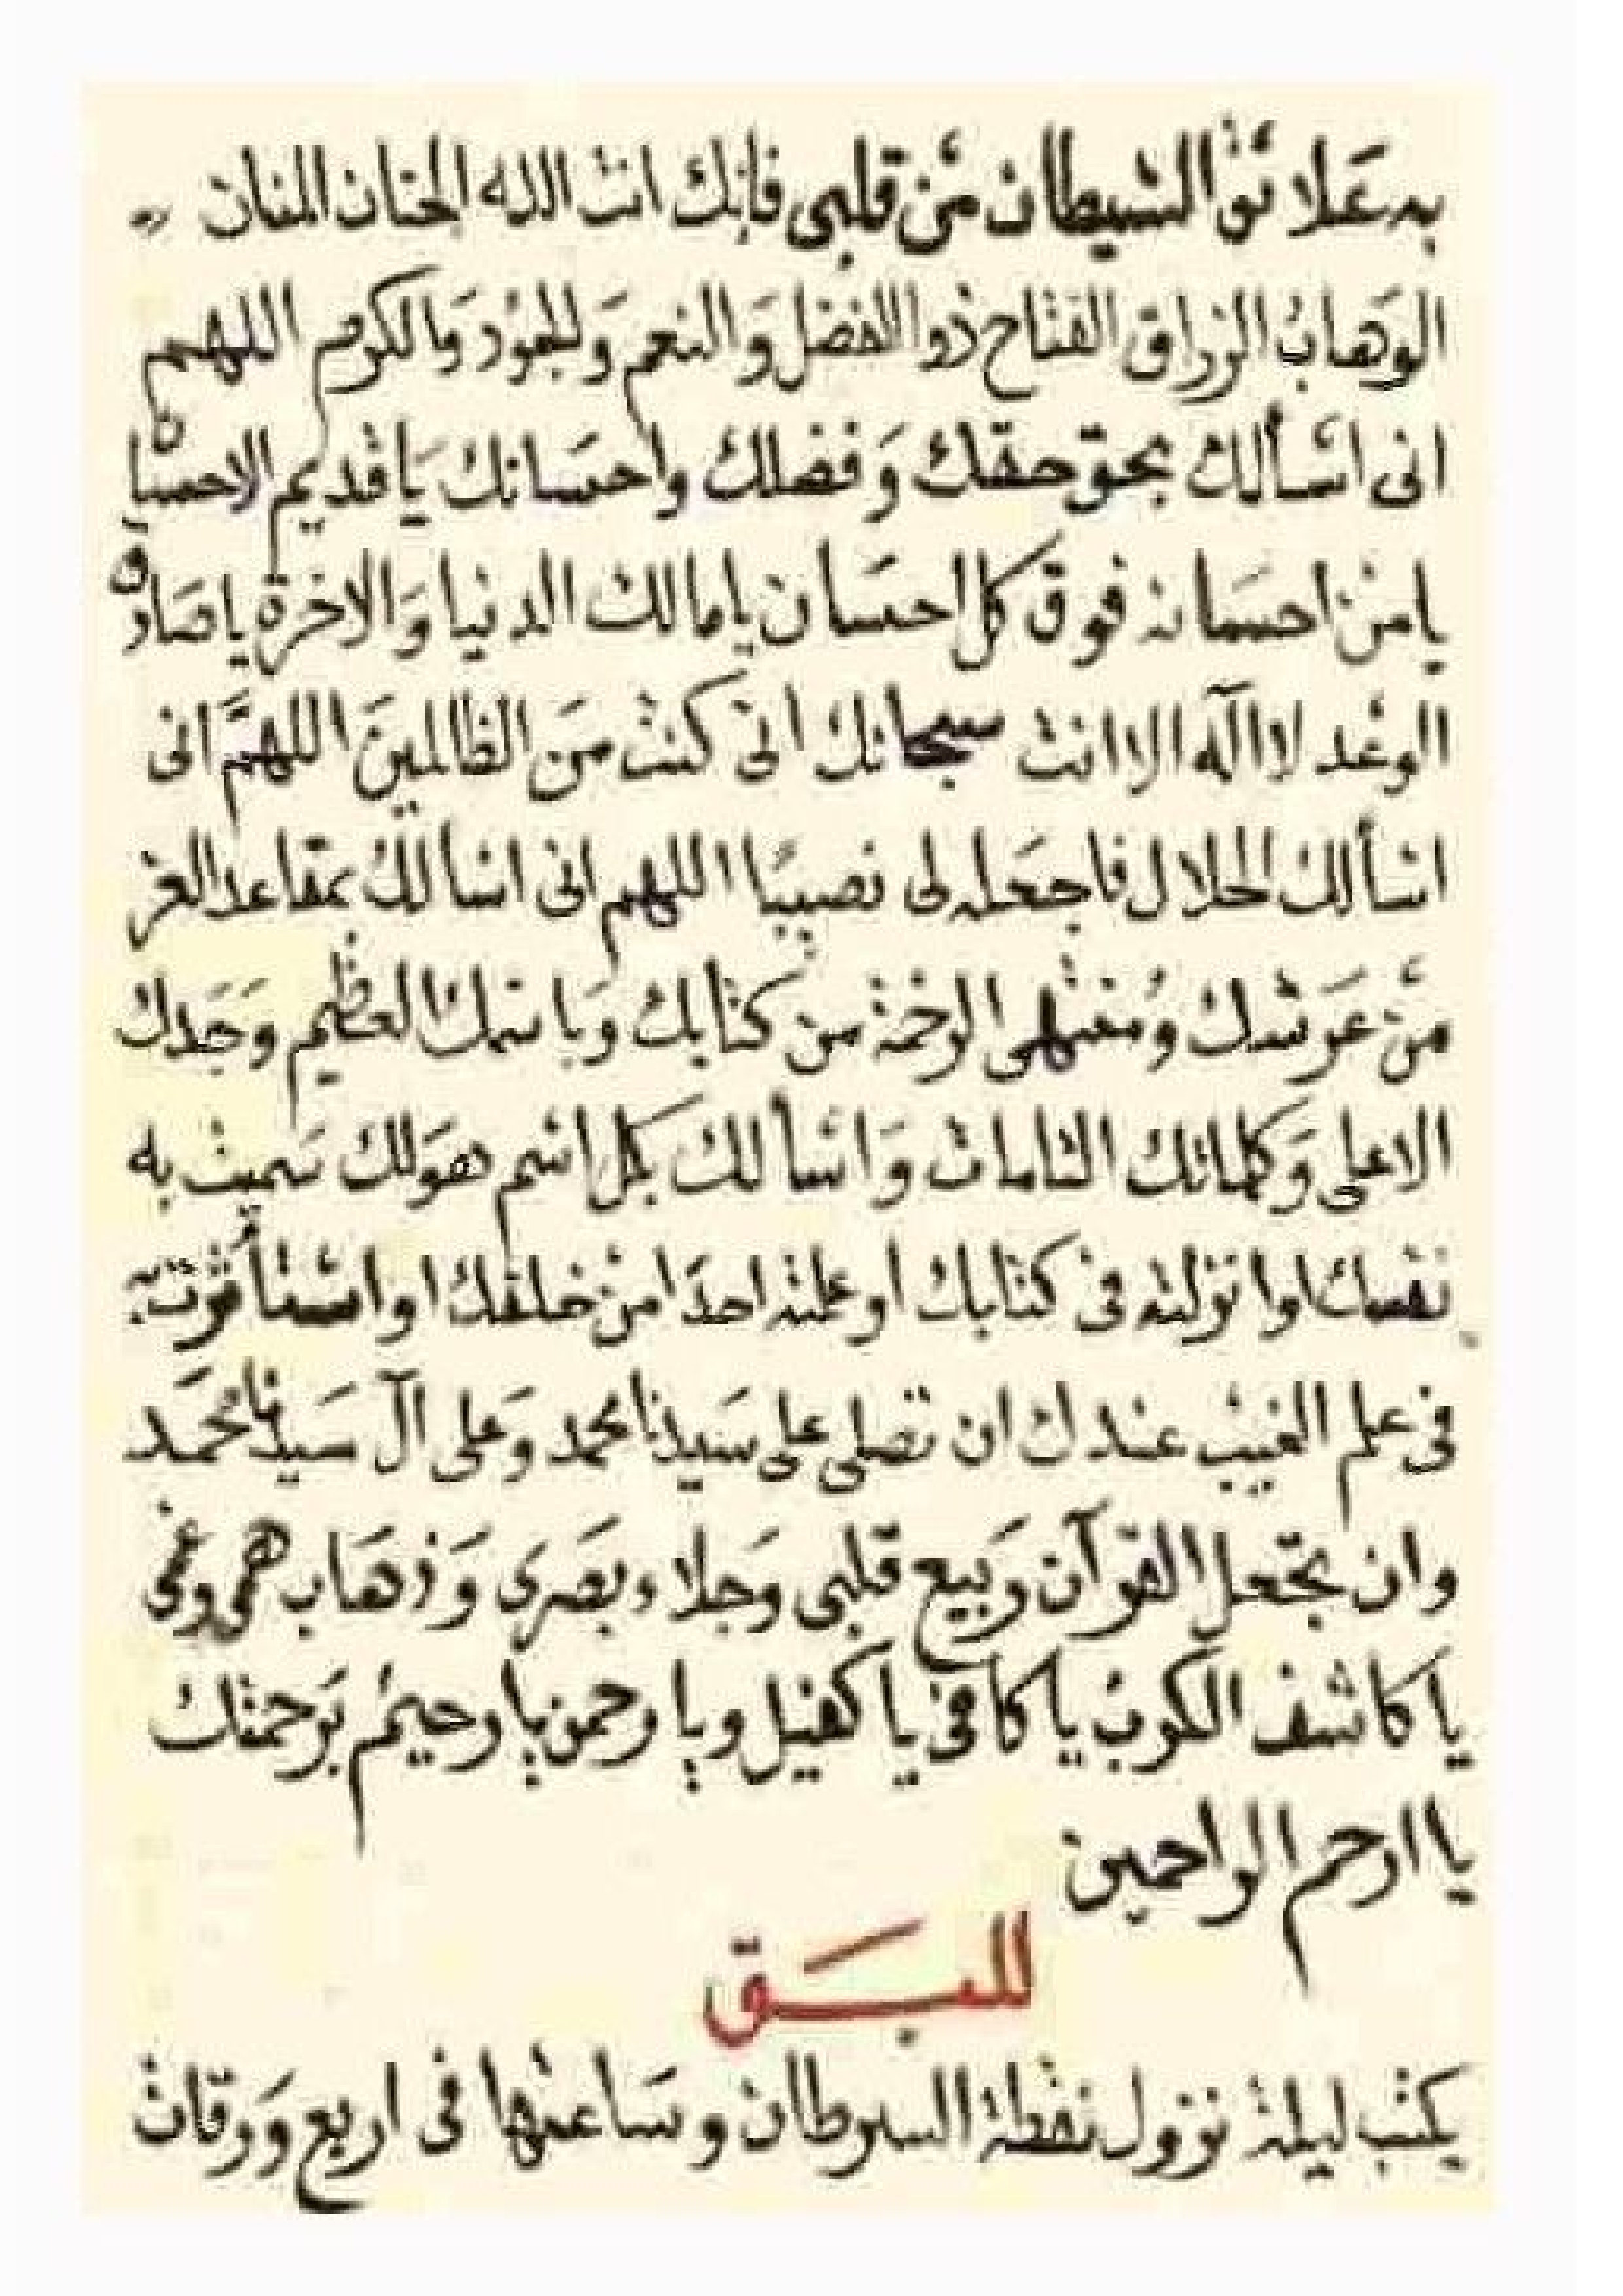 به عَلائق الشيطان منْ قلبى فإنك انت الله الحنان المنان
الوَهابُ الرزاق الفتاح ذوا الفضل وَالنعم وَللجوُد وَالكرم اللهم
انى اسْألك بحق حقك وَفضلك واحسَانك يَا قديم الاحسان
يا منْ احسَانه فوق كل احسَان يا مالك الدنيا وَالاخرة يا صَادق
الوعْد لا اآله الا انت سبحانك انى كنت منَ الظالمينَ اللهمَّ انى
اسْألك الحلال فاجعَله لى نصيبًا اللهم انى اسْألكُ بمقاعد العز
منْ عَرْشك وَمنتهى الرحمة من كتابك وَباسمك العظيم وَجَدك
الاعلى وَكلماتك التامات وَاسْألك بكل اسْم هوَلك سَميت به
نفسك اوانزلته فى كتابك او علمته احدَا منْ خلقك او اسْتأثرْت به
فى علم الغيبْ عندك ان تصلى على سَيدنا محمد وَعلى آل سَيدنا محمَد
وان تجْعل القرآن رَبيع قلبى وَجلاء بصَرى وَذهَاب همى وغمى
يا كاشف الكربْ يا كافى يا كفيل ويا رحمن يا رحيمُ برَحمتك
يا ارحم الراحمين
للبَق
يكتب ليلة نزول نقطة السرطان وسَاعتها فى اربع وَرقات